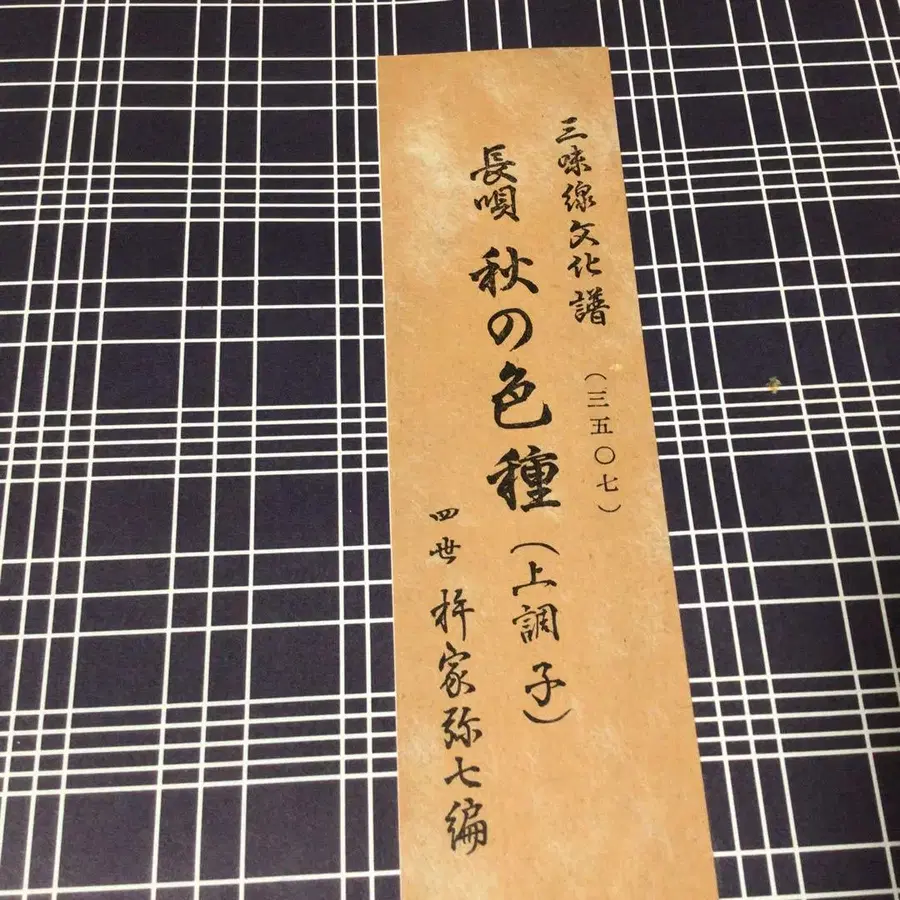 三味線文化譜
（三五〇七）
長唄 秋の色種（上調子）
四世 杵家弥七編